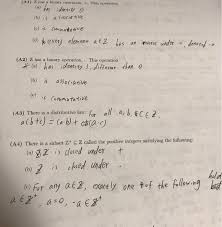 (A1) Z has a binary operation, +. This operation
(a) has identity 0
(b) is associative
(c) is commutative
(d) every element a∈Z has an inverse under +, denoted -a
(A2) Z has a binary operation, ·. This operation
(a) has identity 1, different than 0
(b) is associative
(c) is commutative
(A3) There is a distributive law: for all a, b, c∈Z.
a(b+c) = (a·b) + (a·c)
(A4) There is a subset Z⁺ ⊆ Z called the positive integers satisfying the following:
(a) Z⁺ is closed under +
(b) Z⁺ is closed under ·
(c) For any a∈Z, exactly one of the following holds
a∈Z⁺, a=0, -a∈Z⁺